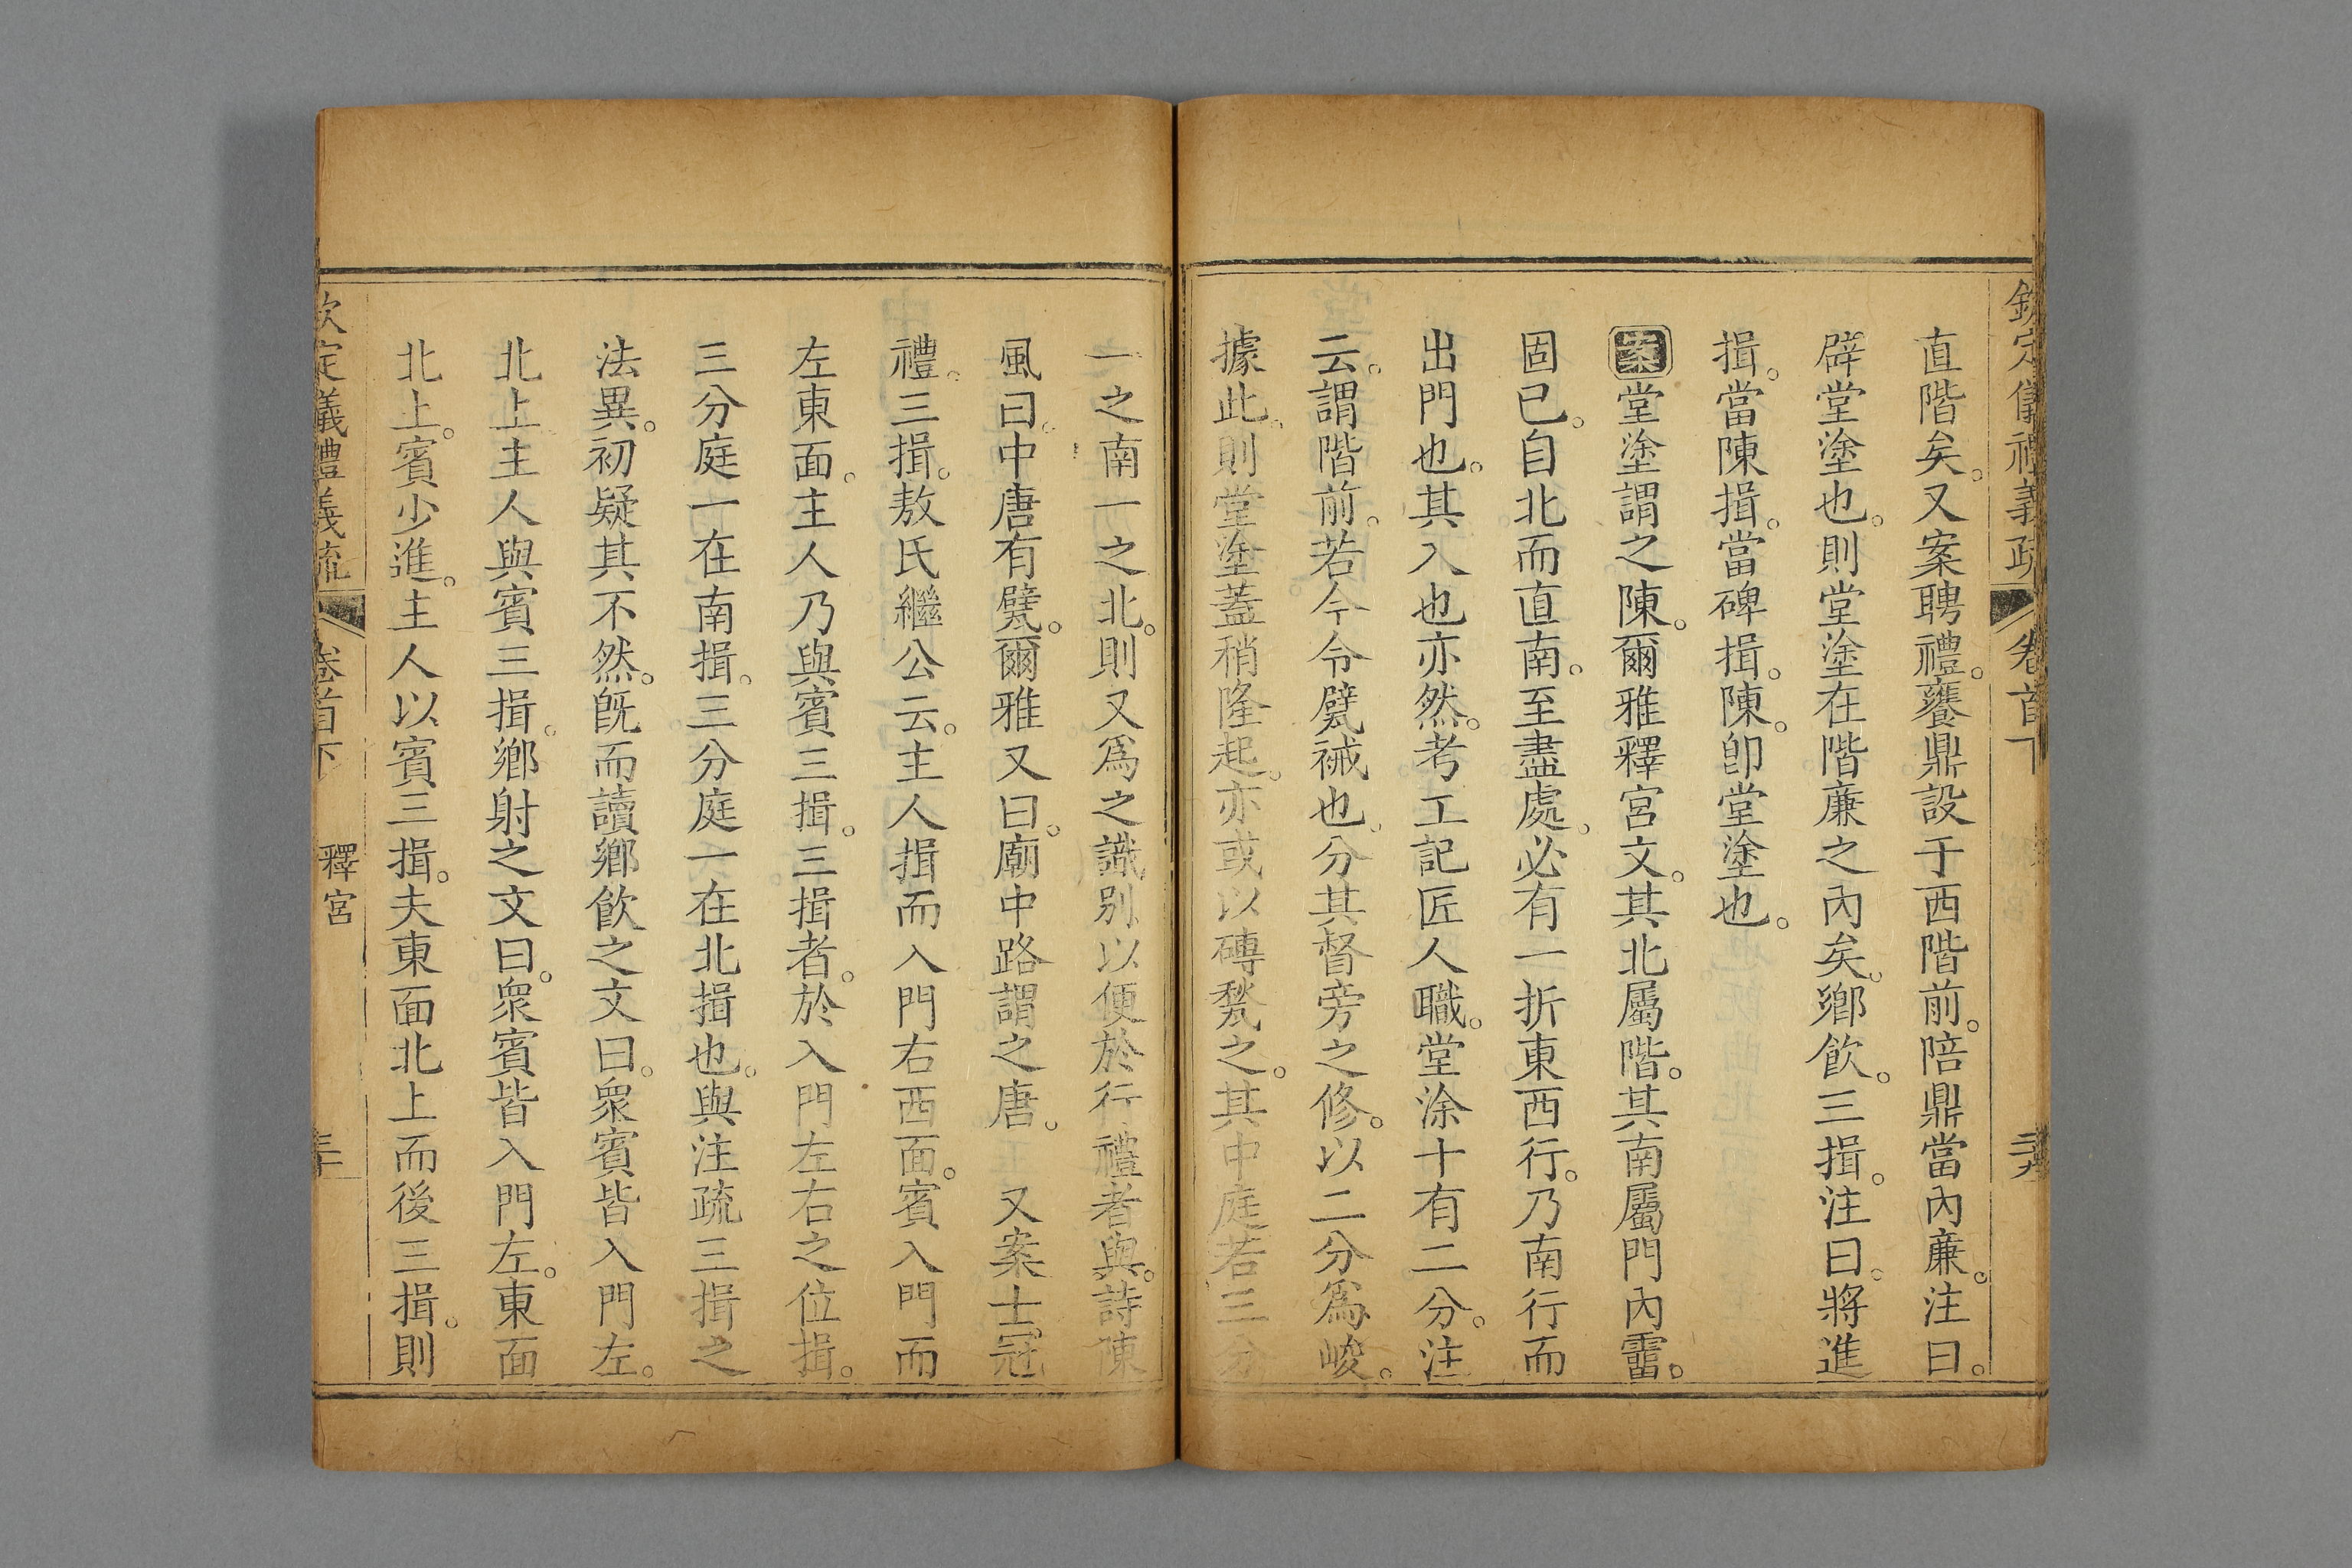 欽定儀禮義疏 卷首下
直階矣。又案聘禮。饔鼎設于西階前。陪鼎當內廉。注曰。
辟堂塗也。則堂塗在階廉之內矣。鄉飲。三揖。注曰。將進
揖。當陳揖。當碑揖。陳。卽堂塗也。
案堂塗謂之陳。爾雅釋宮文。其北屬階。其南屬門內霤。
固已。自北而直南。至盡處。必有一折東西行。乃南行而
出門也。其入也亦然。考工記匠人職。堂涂十有二分。注
云。謂階前。若今令甓裓也。分其督旁之修。以二分爲峻。
據此。則堂塗蓋稍隆起。亦或以磚甃之。其中庭若三分
一之南一之北。則又爲之識別以便於行禮者與。詩陳
風曰。中唐有甓。爾雅又曰。廟中路謂之唐。 又案士冠
禮。三揖。敖氏繼公云。主人揖而入門右西面。賓入門而
左東面。主人乃與賓三揖。三揖者。於入門左右之位揖。
三分庭一在南揖。三分庭一在北揖也。與注疏三揖之
法異。初疑其不然。旣而讀鄉飲之文曰。衆賓皆入門左。
北上主人與賓三揖。鄉射之文曰。衆賓皆入門左。東面
北上。賓少進。主人以賓三揖。夫東面北上而後三揖。則
欽定儀禮義疏 卷首下 釋宮